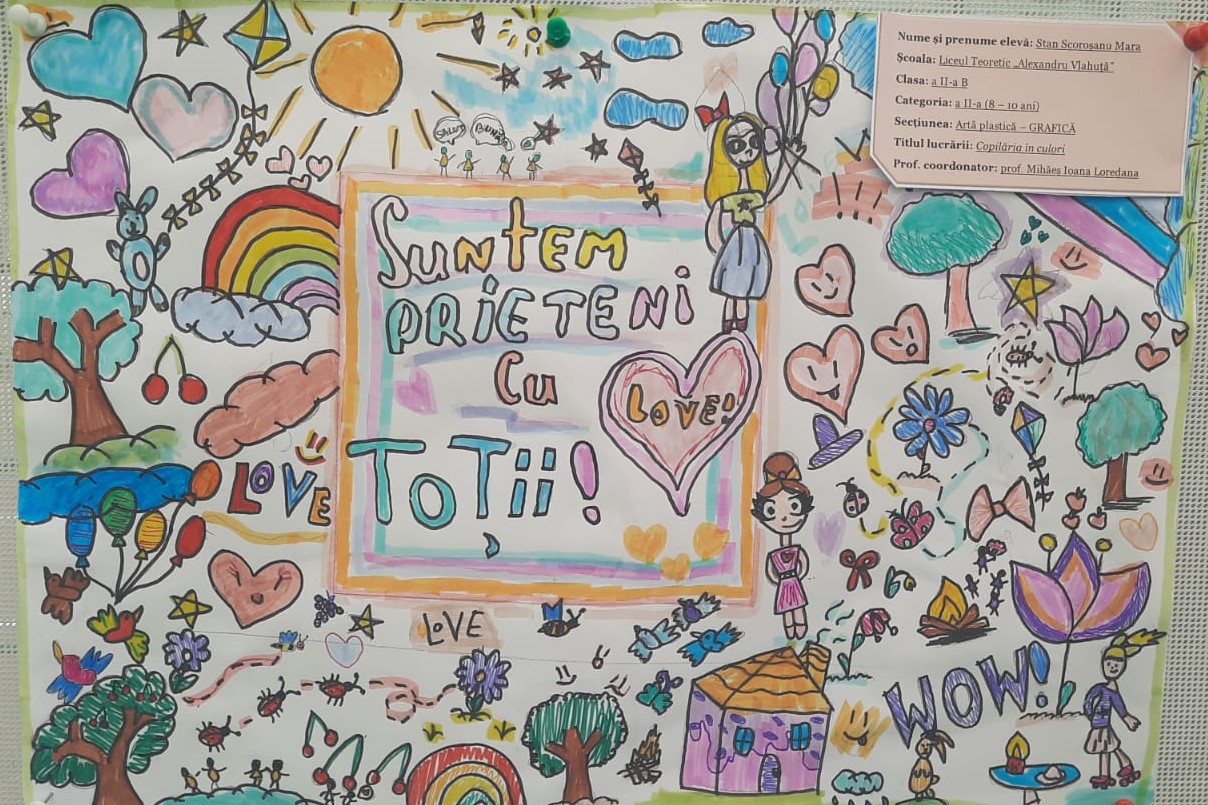 Nume și prenume elevă: Stan Scoroșanu Mara
Școala: Liceul Teoretic „Alexandru Vlahuță”
Clasa: a II-a B
Categoria: a II-a (8 – 10 ani)
Secțiunea: Artă plastică – GRAFICĂ
Titlul lucrării: Copilăria în culori
Prof. coordonator: prof. Mihăeș Ioana Loredana
SALUT
BUNĂ
SUNTEM
PRIETENI
CU
TOȚii!
LOVE!
LOVE
LOVE
WOW!